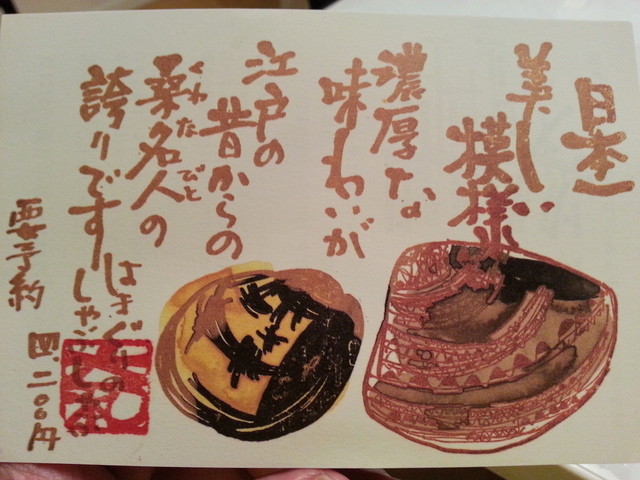 日本一
美しい
模様
濃厚な
味わいが
江戸の
昔からの
桑名人の
くわたびと
誇りです
はまぐりの
しゃぶしゃぶ
要予約
四、二〇〇円